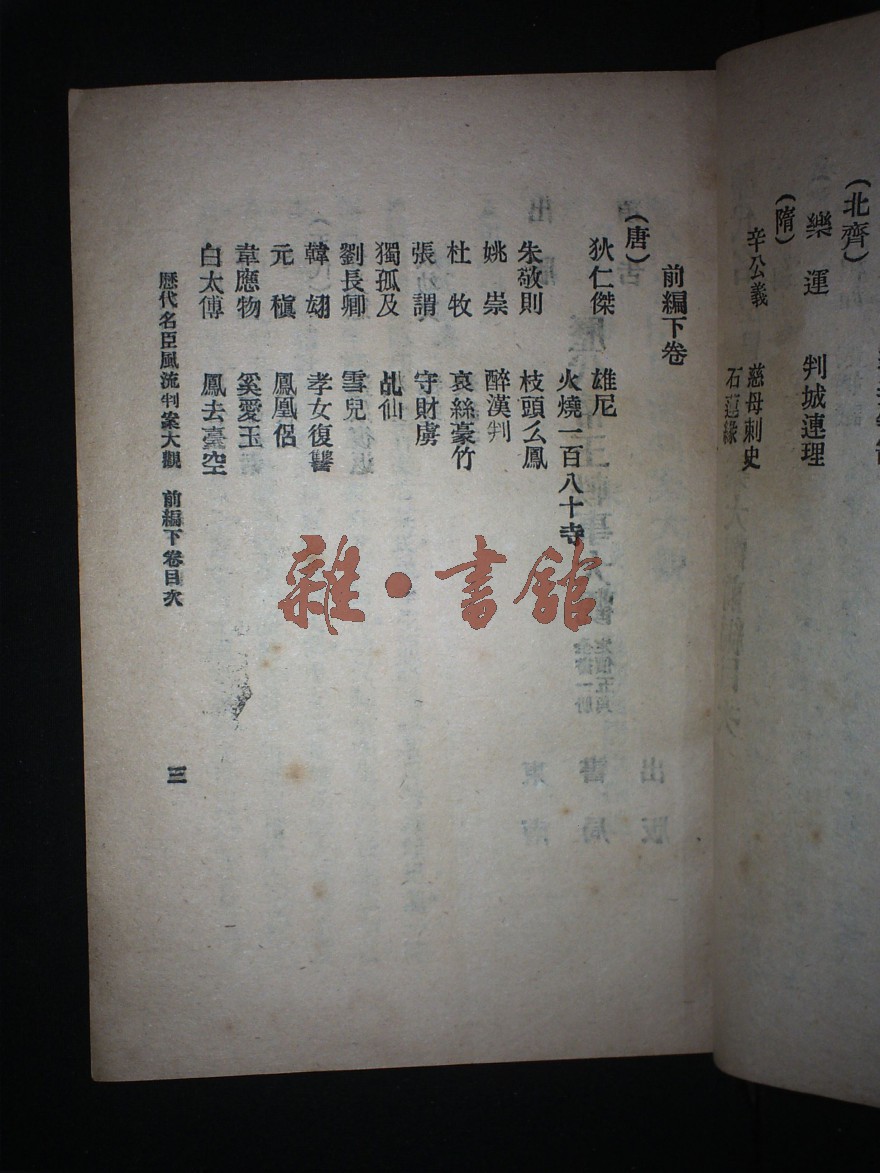 (北齊)
樂運 判城連理
(隋)
辛公義 慈母刺史
石蓮緣
前編下卷
(唐)
狄仁傑 雄尼
火燒一百八十寺
朱敬則 枝頭么鳳
姚崇 醉漢判
杜牧 哀絲豪竹
張謂 守財虜
獨孤及 乩仙
劉長卿 雪兒
韓翃 孝女復讐
元稹 鳳凰侶
韋應物 奚愛玉
白太傅 鳳去臺空
歷代名臣風流判案大觀 前編下卷目次
三
雜·書館